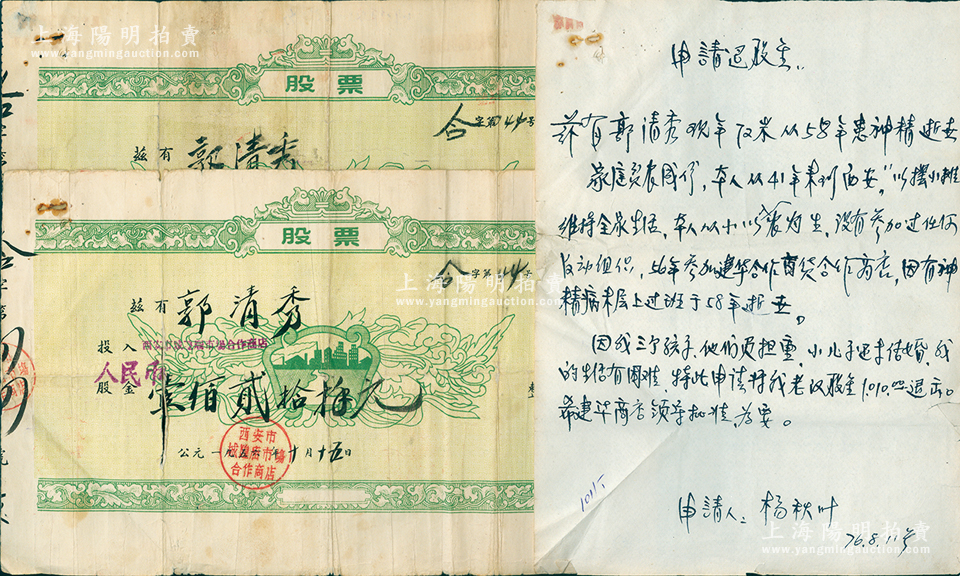 上海陽明拍賣
www.yangmingauction.com
股票
合字第44号
兹有 郭清秀
股票
合字第44号
兹有 郭清秀
投入
西安市城隍庙市場合作商店
股金
人民币
壹佰贰拾 元
公元一九五六年十月十五日
西安市
城隍庙市場
合作商店
申請退股金.
兹有郭清秀 从58年患神精逝去
家庭贫农成份，本人从41年来到西安，以摆小摊
维持全家生活，本人从小以农为生，没有参加过任何
反动组织，56年参加建华合作百货合作商店，因有神
精病未层上过班于58年逝去。
因我三个孩子，他们负担重，小儿子还未结婚，我
的生活有困难，特此申请将我老汉股金 退 。
希建华商店领导批准，为要。
申請人：杨秋叶
76.8.11号
上海陽明拍賣
www.yangmingauction.com